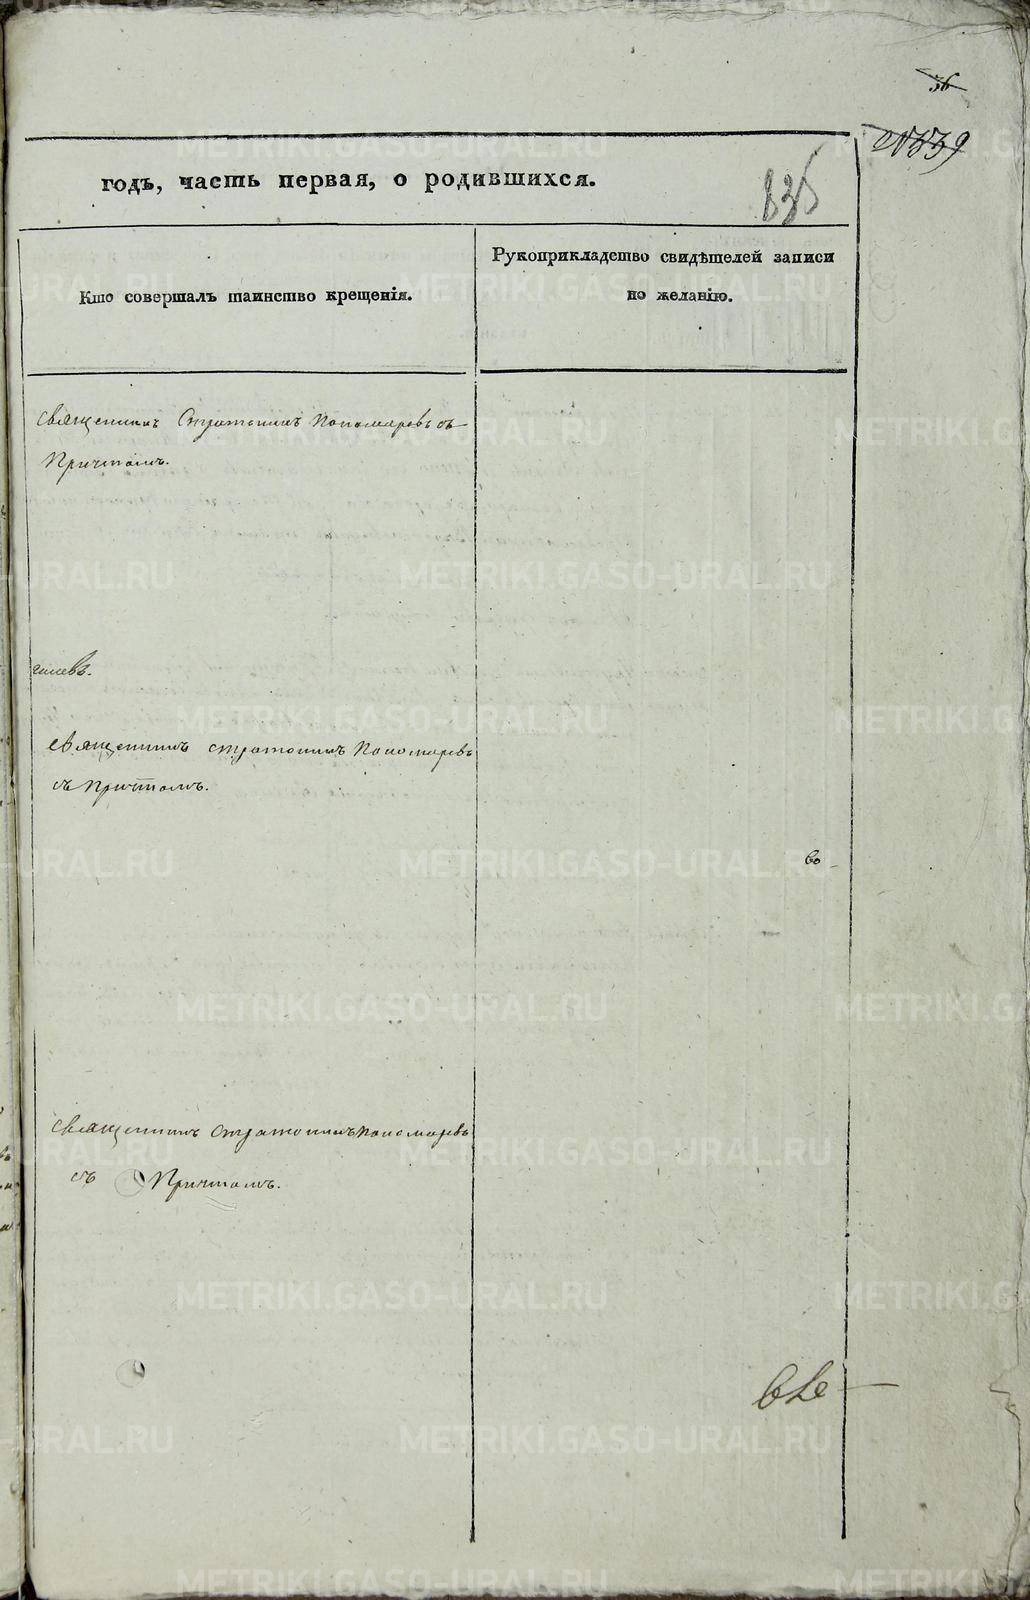 36
№339
годъ, часть первая, о родившихся.
835
Кто совершалъ таинство крещенія.
Рукоприкладство свидѣтелей записи
по желанію.
Священникъ Стратоникъ Пономаревъ съ
Причтомъ.
Священникъ стратоникъ Пономаревъ
съ Причтомъ.
во
Священникъ стратоникъ Пономаревъ
съ Причтомъ.
METRIKI.GASO-URAL.RU